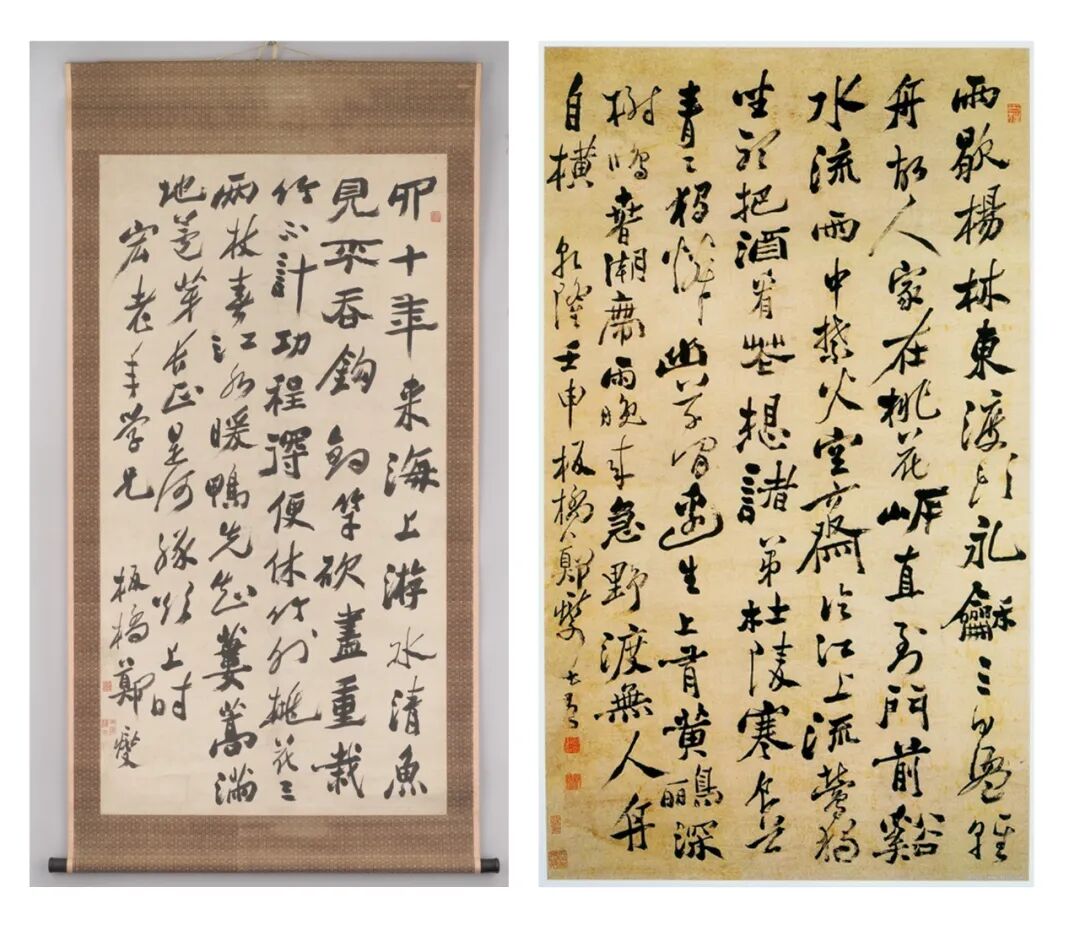 四十年来海上游水清魚
見不吞鉤釣竿砍盡重栽
竹不計功程得便休竹外桃花三
兩枝春江水暖鴨先知蔞蒿滿
地芦芽正是河豚欲上時
宏老年學兄 板橋鄭燮
雨歇楊林東渡頭永龢三日盪軽
舟故人家在桃花岸直到門前谿
水流雨中禁火空齋冷江上流鶯獨
坐聽把酒看花想諸弟杜陵寒食草
青〻獨憐幽草澗邊生上有黃鸝深
樹鳴春潮帶雨晚来急野渡無人舟
自橫 乾隆壬申板橋鄭燮